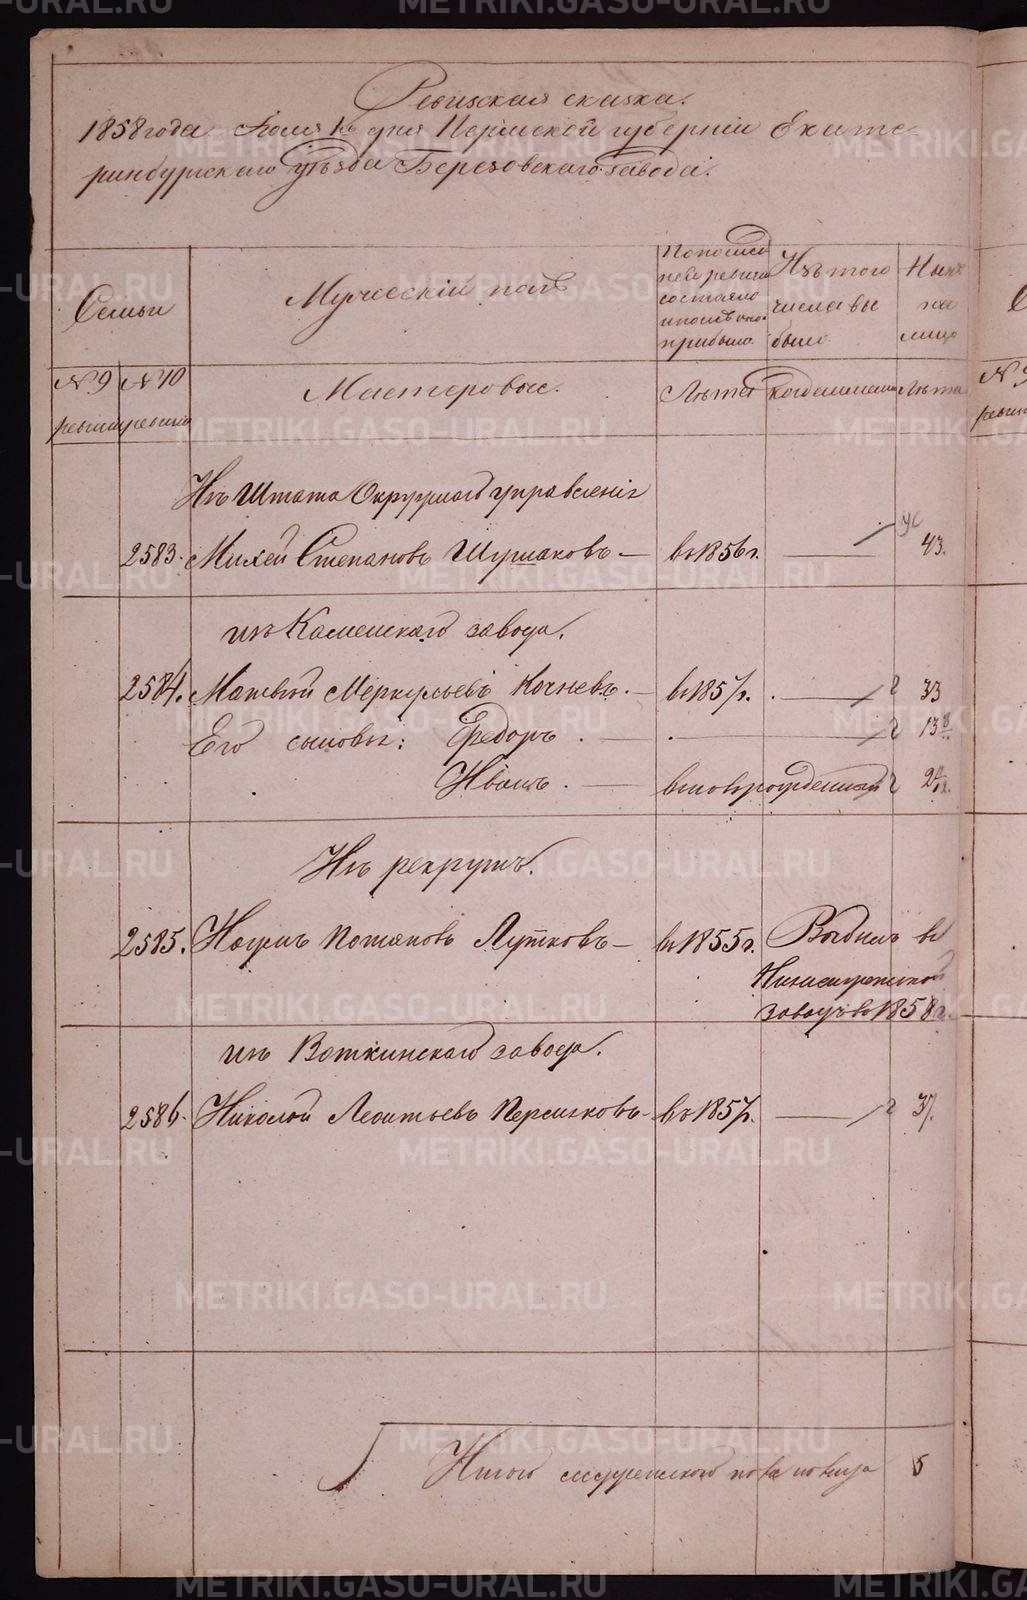 Ревизская сказка.
1858 года Іюля 1го дня Пермской губерніи Екате-
ринбургскаго уѣзда Березовскаго завода.
Семьи
Мужескій полъ
По послед
ней ревизіи
состояло
и после оной
прибыло
Изъ того
числа вы
было
Ныне
на
лицо
№ 9 ревизіи
№ 10 ревизіи
Мастеровые.
Лѣта
Когда именно
Лѣта
Изъ Штата Окружнаго управленія
2583. Михей Степановъ Шушаковъ — въ 1856 г. — 43.
изъ Каменскаго завода.
2584. Матвей Меркурьевъ Кочневъ. — въ 1857 г. — 33
Его сыновья: Федоръ. — 13
Иванъ. — вновьрожденный 2
Изъ рекрутъ.
2585. Наумъ Потаповъ Лутковъ — въ 1855 г. Выбылъ въ
Нижнеисетской
заводъ въ 1858 г.
изъ Воткинскаго завода.
2586. Николай Леонтьевъ Перминовъ — въ 1857 г. — 37.
Итого мужескаго пола на лицо 5
METRIKI.GASO-URAL.RU